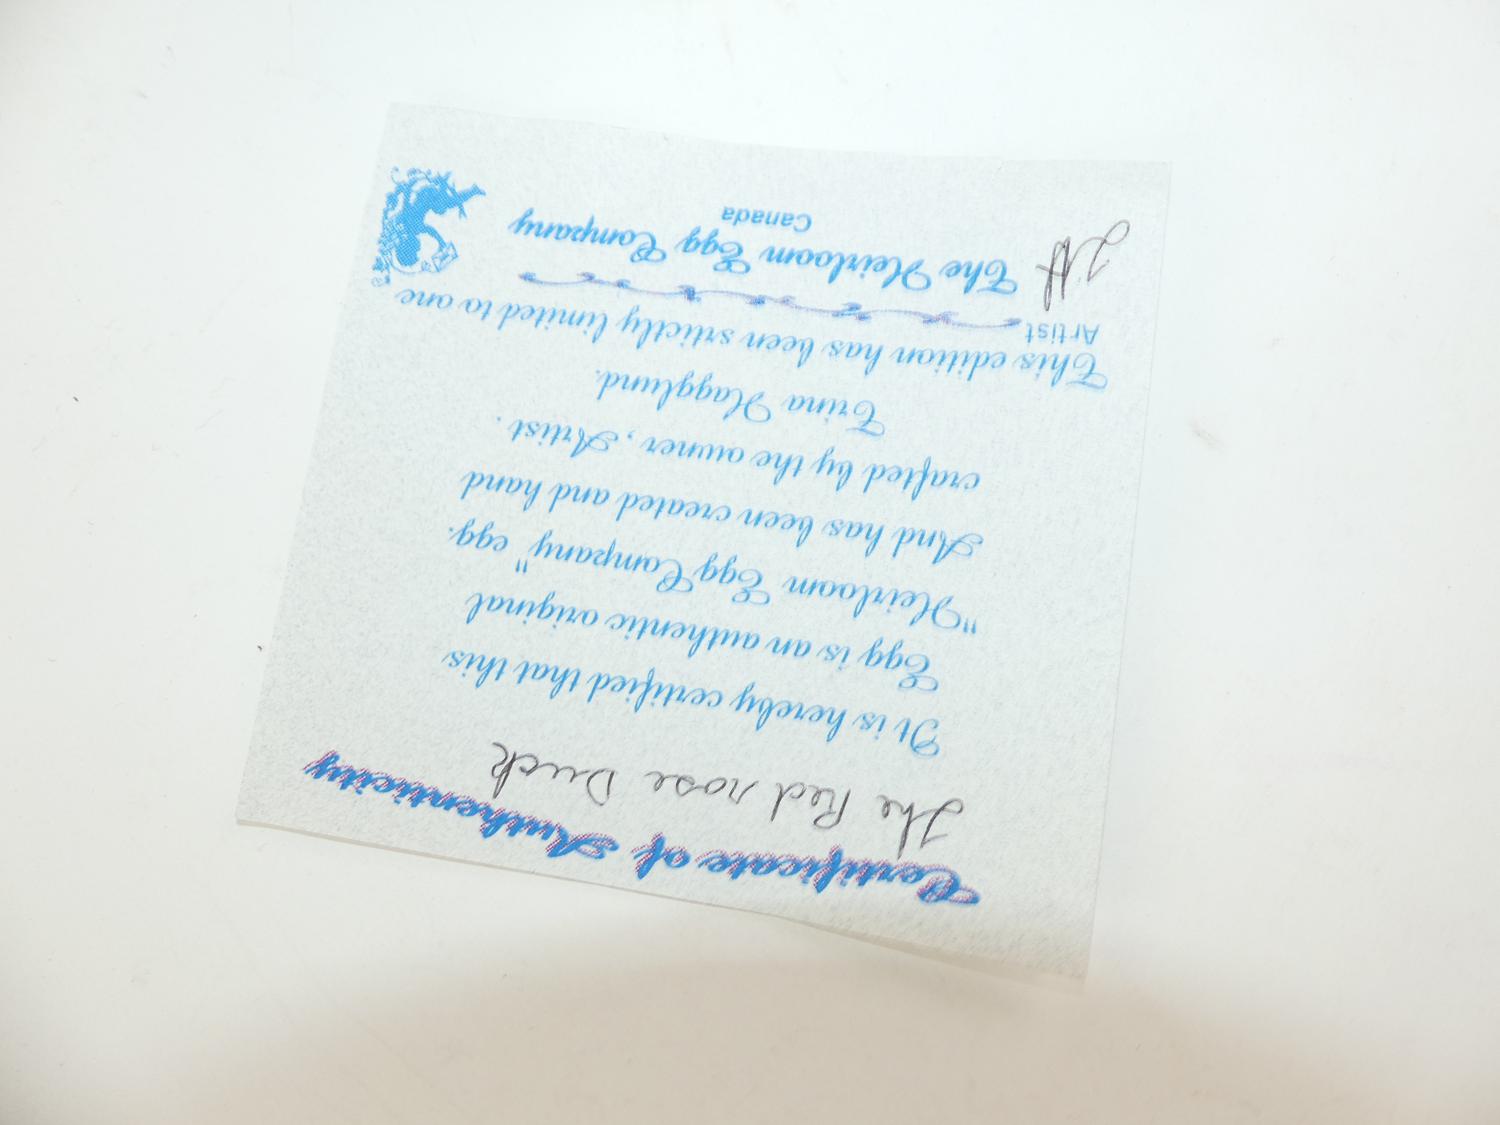 Certificate of Authenticity
The Red rose Duck
It is hereby certified that this
Egg is an authentic original
"Heirloom Egg Company" egg.
And has been created and hand
crafted by the owner, Artist.
Trina Hagglund.
This edition has been srtictly limited to one
Artist
The Heirloom Egg Company
Canada